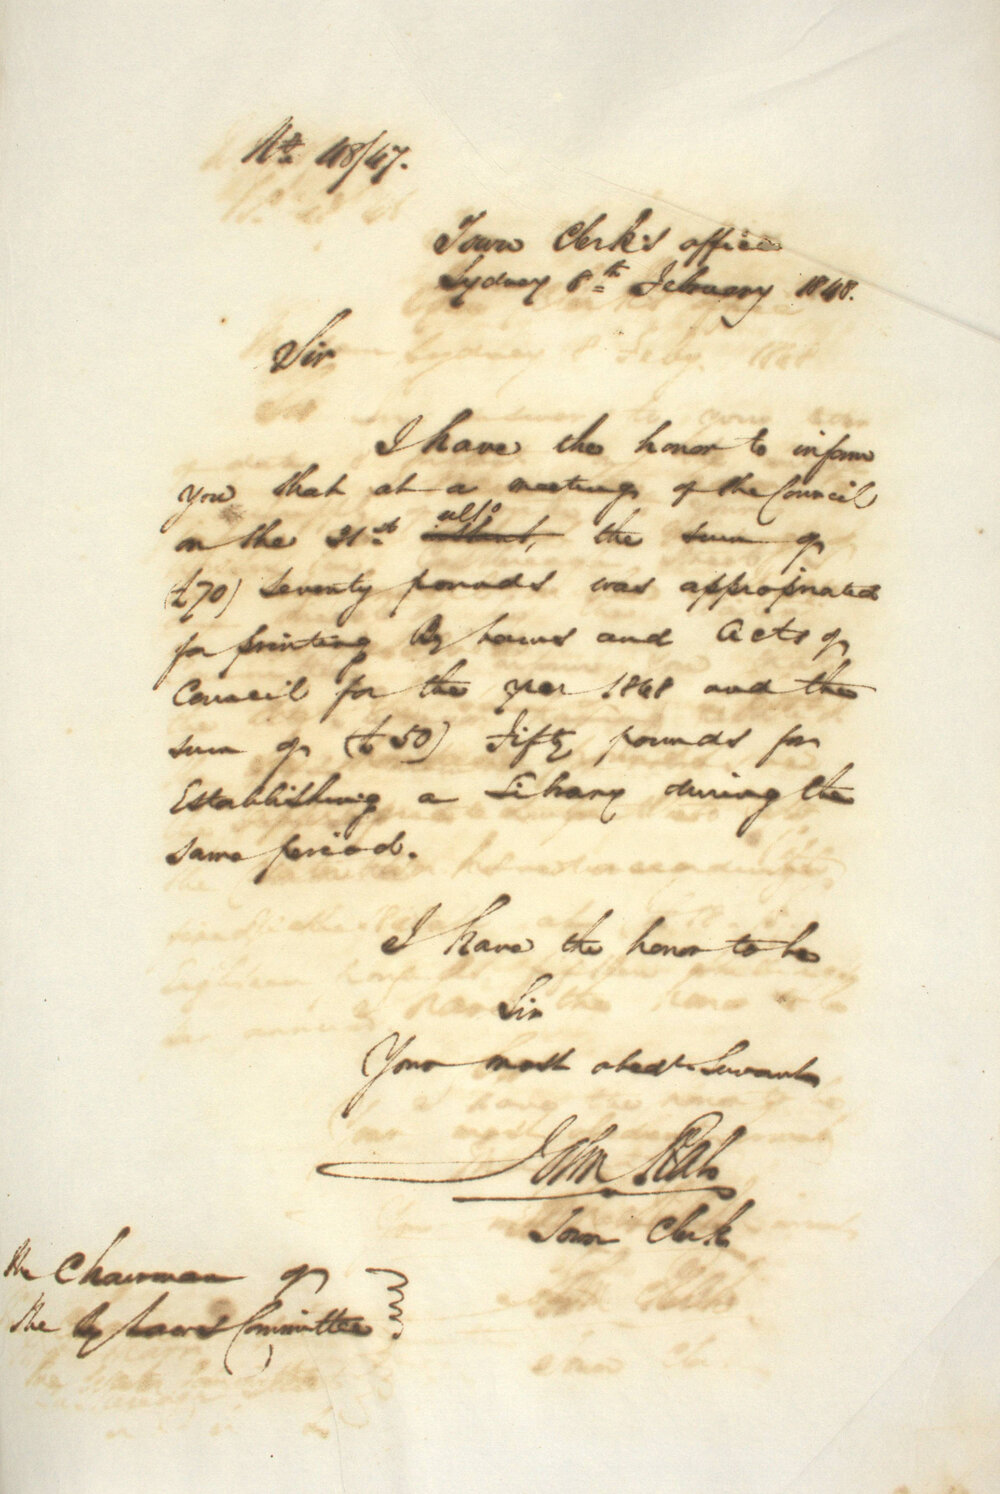 No. 48/47.
Town Clerk's office
Sydney 8th February 1848.
Sir
I have the honor to inform
you that at a meeting of the Council
on the 31st ulto instant, the sum of
(£70) Seventy pounds was appropriated
for printing By Laws and Acts of
Council for the year 1848 and the
sum of (£50) Fifty pounds for
Establishing a Library during the
same period.
I have the honor to be
Sir
Your most obedt. Servant
John Rae
Town Clerk
The Chairman of
the By Laws Committee